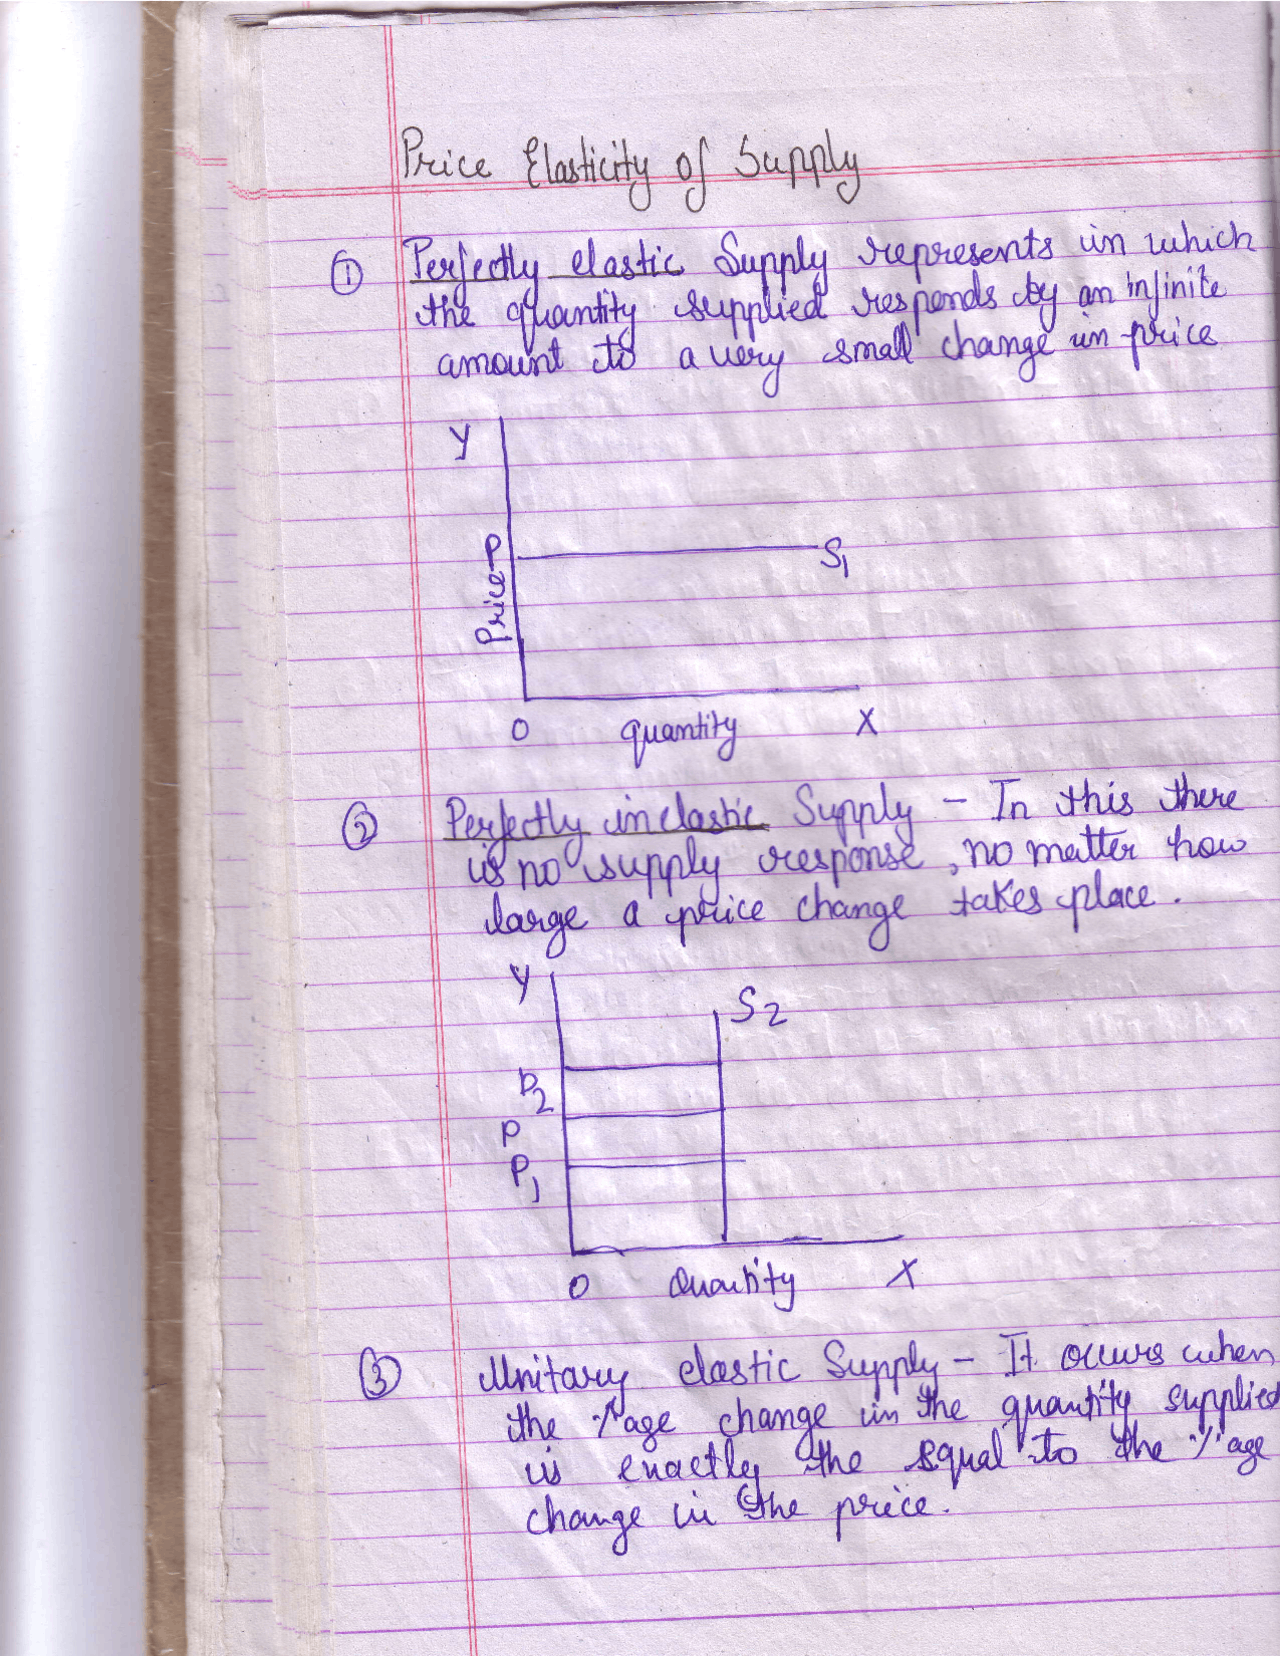 Price Elasticity of Supply
① Perfectly elastic Supply represents in which
the quantity supplied responds by an infinite
amount to a very small change in price
Y
P
Price
S1
O quantity X
② Perfectly inelastic Supply – In this there
is no supply response, no matter how
large a price change takes place.
Y
S2
P2
P
P1
O Quantity X
③ Unitary elastic Supply – It occurs when
the %age change in the quantity supplied
is exactly the equal to the %age
change in the price.